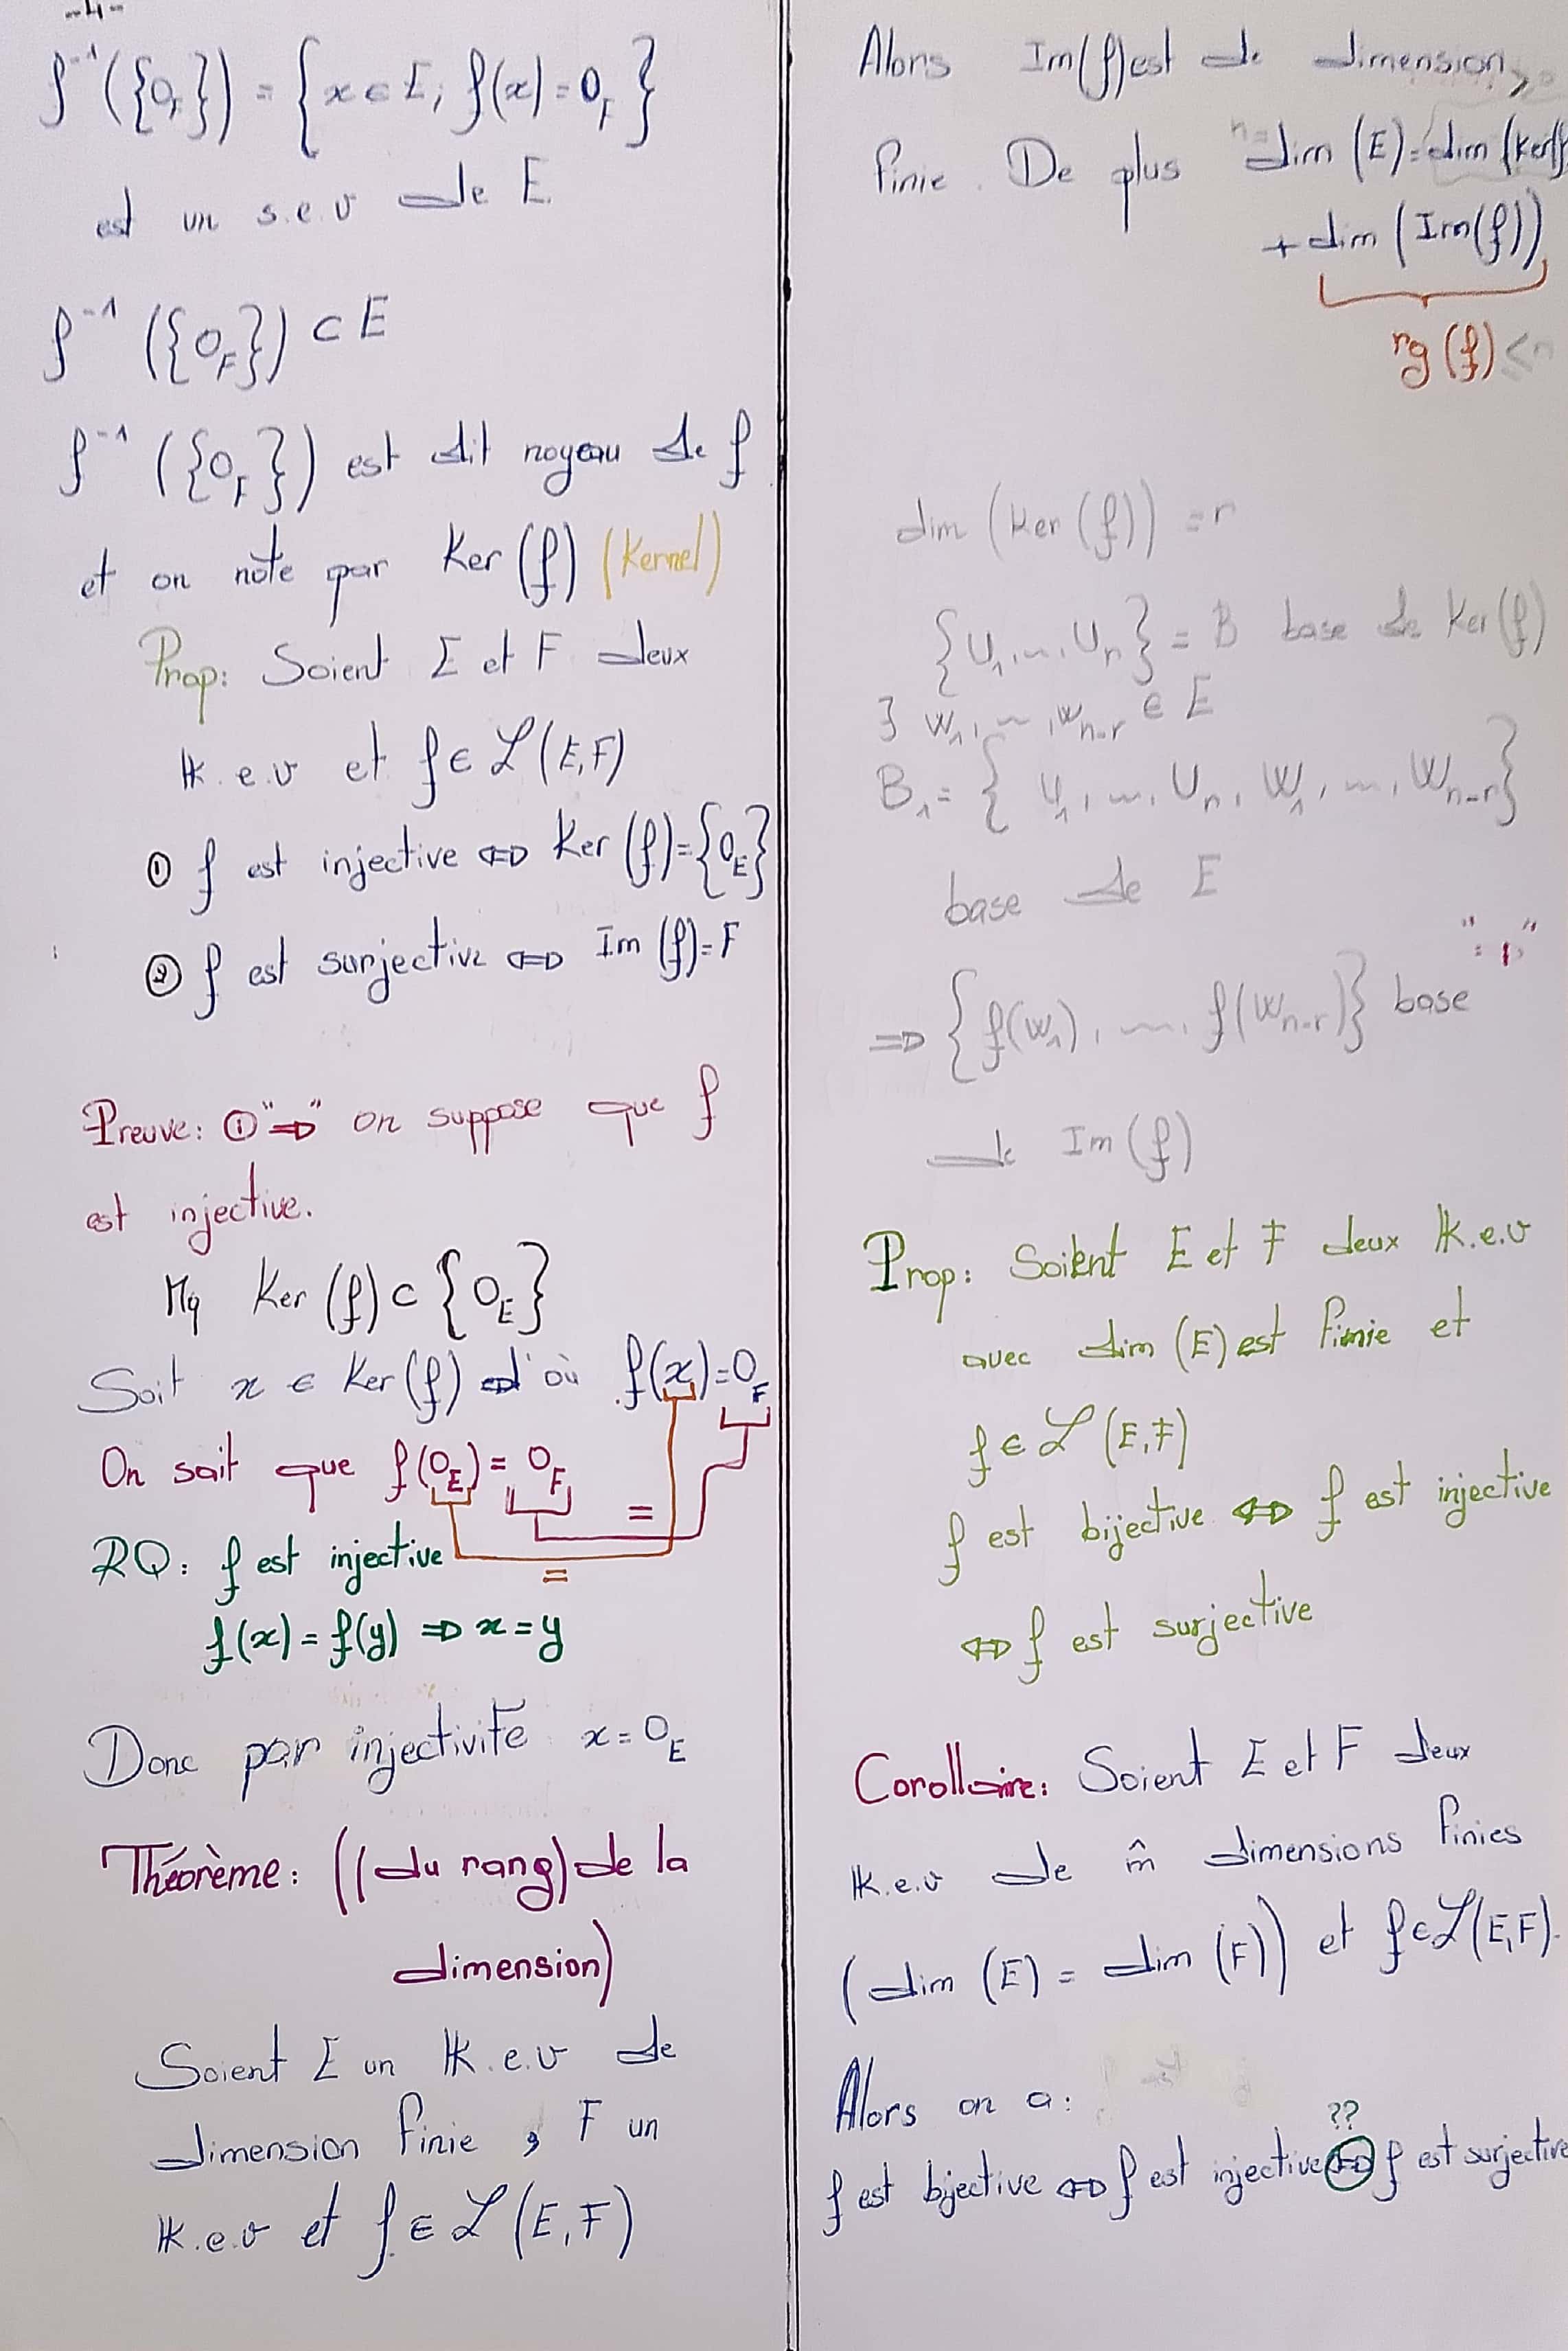 -4-
f⁻¹({0_F}) = {x ∈ E; f(x) = 0_F}
est un s.e.v de E
f⁻¹({0_F}) ⊂ E
f⁻¹({0_F}) est dit noyau de f
et on note par Ker(f) (Kernel)
Prop: Soient E et F deux
lK.e.v et f ∈ ℒ(E,F)
① f est injective ⇔ Ker(f)={0_E}
② f est surjective ⇔ Im(f)=F
Preuve: ① "⇒" on suppose que f
est injective.
Mq Ker(f) ⊂ {0_E}
Soit x ∈ Ker(f) d'où f(x)=0_F
On sait que f(0_E) = 0_F =
RQ: f est injective =
f(x) = f(y) ⇒ x = y
Donc par injectivité x = 0_E
Théorème: ((du rang) de la
dimension)
Soient E un lK.e.v de
dimension finie, F un
lK.e.v et f ∈ ℒ(E,F)
Alors Im(f) est de dimension
finie. De plus n= dim(E)=dim(Kerf)
+ dim(Im(f))
rg(f) ≤ n
dim(Ker(f)) = r
{U₁, ..., Uᵣ} = B base de Ker(f)
∃ w₁, ..., wₙ₋ᵣ ∈ E
B₁ = {U₁, ..., Uᵣ, W₁, ..., Wₙ₋ᵣ}
base de E
"⇒"
⇒ {f(w₁), ..., f(wₙ₋ᵣ)} base
de Im(f)
Prop: Soient E et F deux lK.e.v
avec dim(E) est finie et
f ∈ ℒ(E,F)
f est bijective ⇔ f est injective
⇔ f est surjective
Corollaire: Soient E et F deux
lK.e.v de m̂ dimensions finies
(dim(E) = dim(F)) et f ∈ ℒ(E,F).
Alors on a:
??
f est bjective ⇔ f est injective ⇔ f est surjective